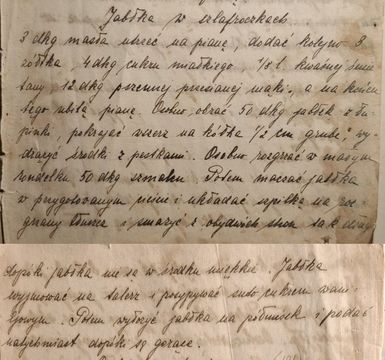 Jabłka w szlafroczkach
3 dkg masła utrzeć na pianę, dodać kolejno 3
żółtka, 4 dkg cukru miałkiego, 1/8 l. kwaśnej śmie
tany, 12 dkg pszennej przesianej mąki, a na końcu
tego ubitą pianę. Osobno obrać 50 dkg jabłek z łu
pinki, pokrajać wszerz na kółka 1/2 cm grube wy
drążyć środki z pestkami. Osobno rozgrzać w małym
rondelku 50 dkg szmalcu. Potem maczać jabłka
w przygotowanym cieście i układać szpilką na roz
grzany tłuszcz i smażyć z obydwóch stron tak długo
dopóki jabłka nie są w środku miękkie. Jabłka
wyjmować na talerz i posypywać suto cukrem wani
liowym. Potem wyłożyć jabłka na półmisek i podać
natychmiast dopóki są gorące.